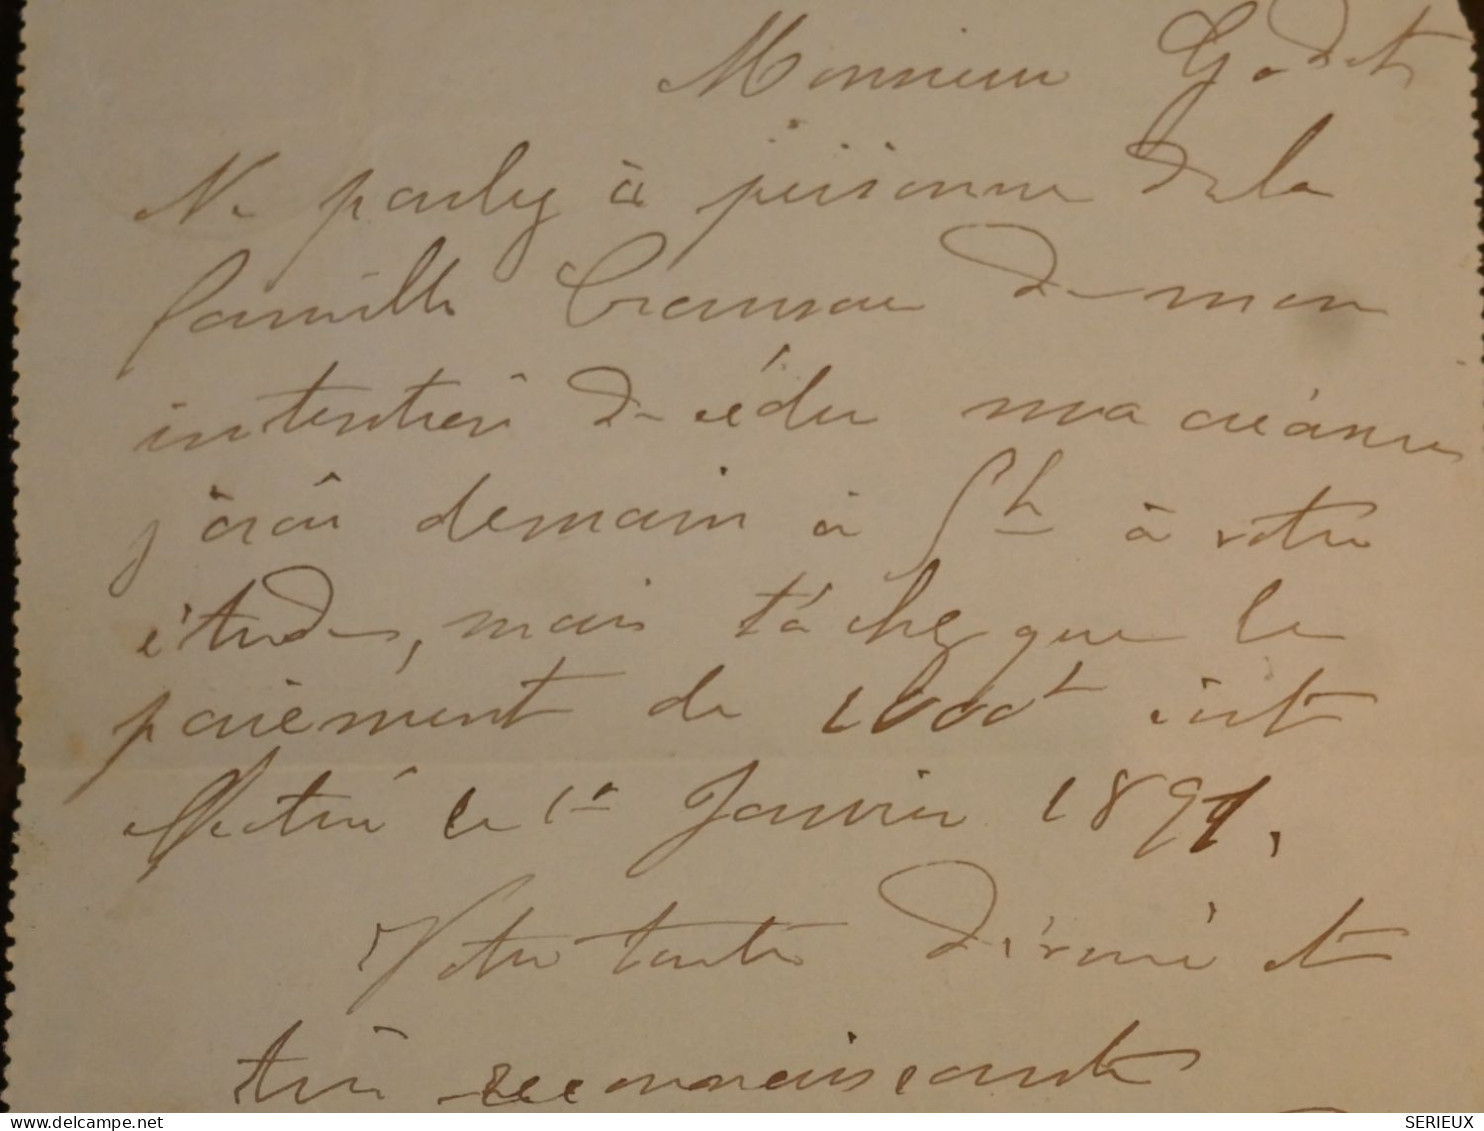 Monsieur Godet
Ne parlez à personne de la
famille de mon
intention de céder ma créance
j'irai demain à h à votre
étude, mais tâchez que le
paiement de 1000f soit
effectué le 1er Janvier 1891.
Votre toute dévouée et
très reconnaissante
delcampe.net
SERIEUX